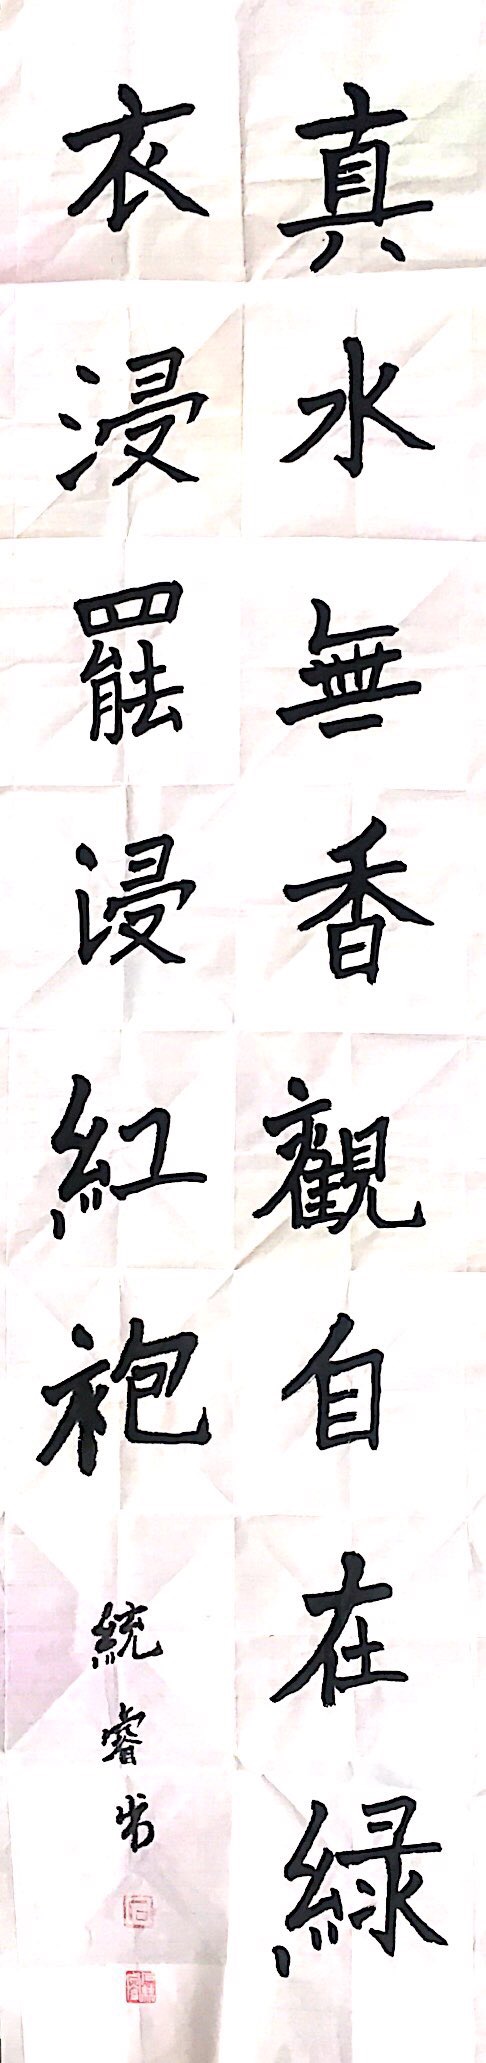 真水無香觀自在緑
衣浸罷浸紅袍
統睿书